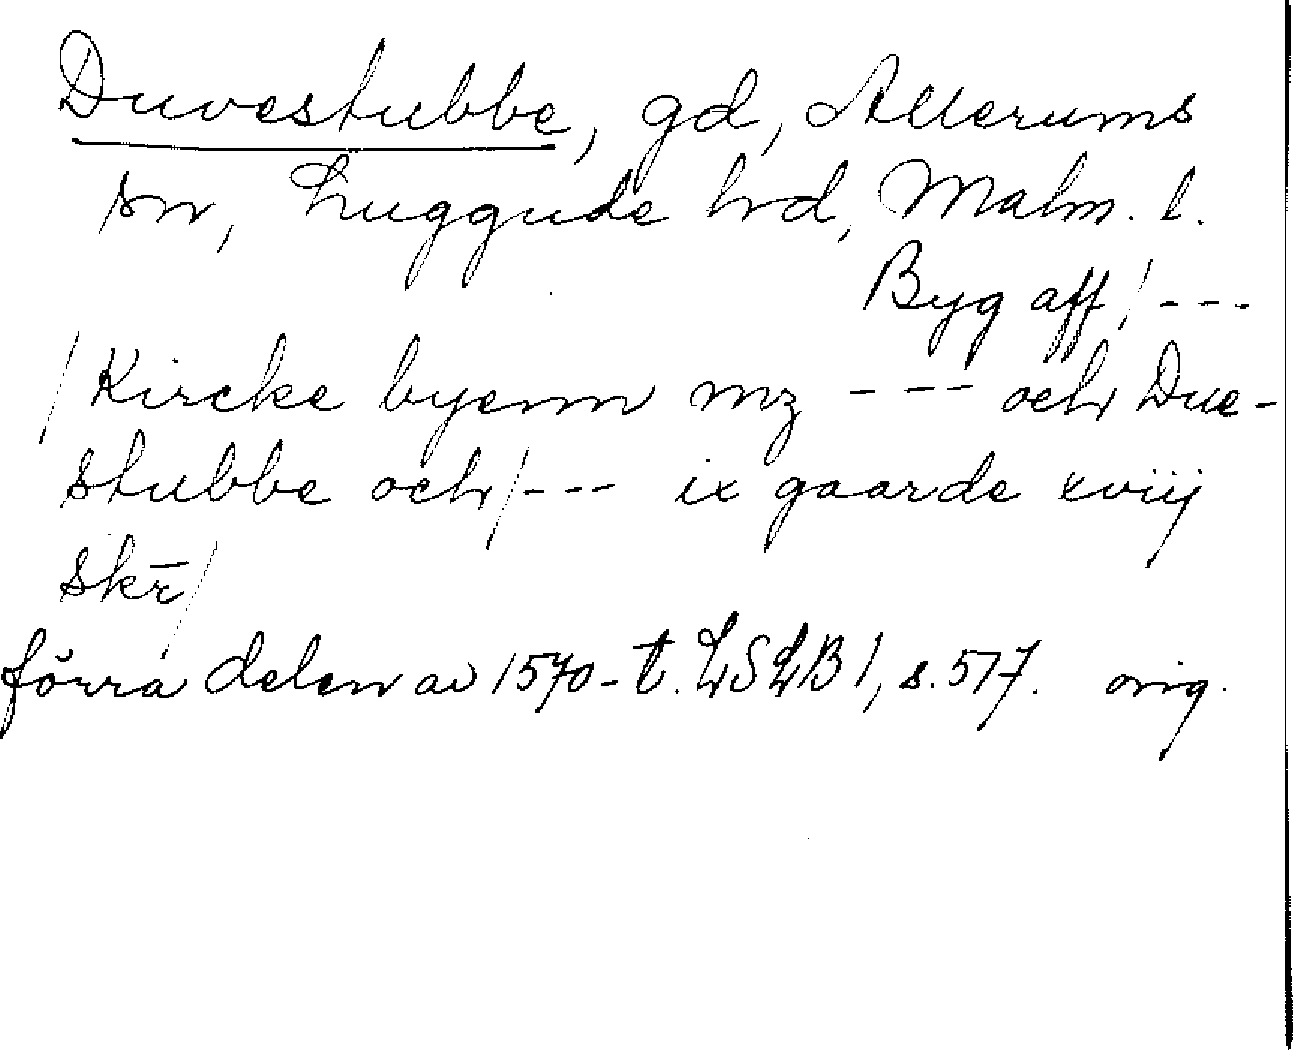 Duvestubbe, gd, Allerums
sn, Luggude hrd, Malm. l.
Byg aff / ---
/ Kircke byenn mz --- och Due-
stubbe och / --- ix gaarde xviij
skr̄ /
förra delen av 1570-t. LSLB 1, s. 517. orig.